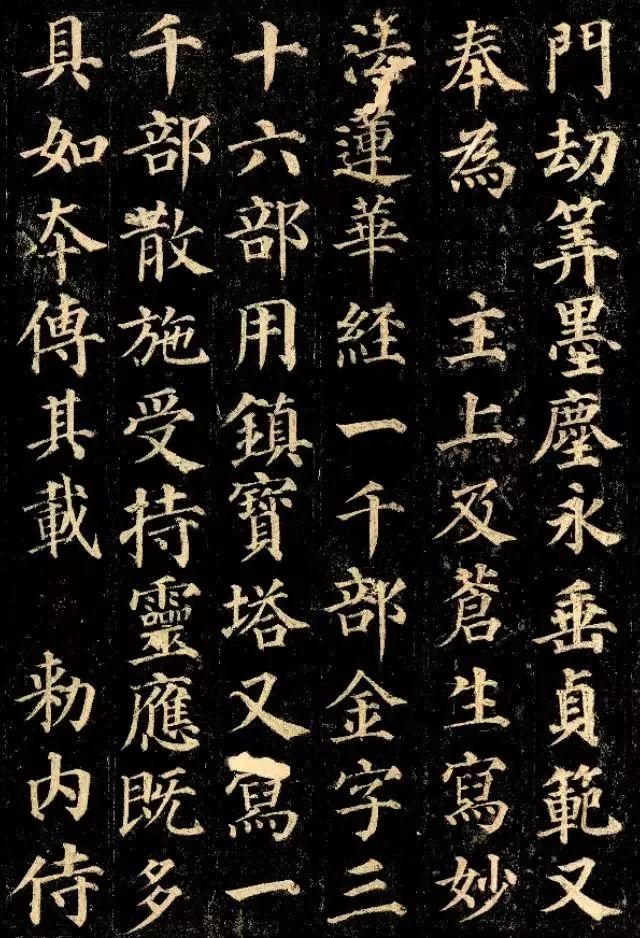 門劫筭墨塵永垂貞範又
奉為 主上及蒼生寫妙
法蓮華經一千部金字三
十六部用鎮寶塔又寫一
千部散施受持靈應既多
具如本傳其載 勅内侍